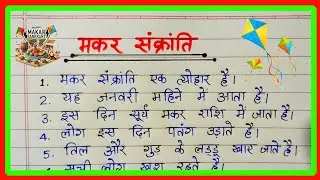 MAKAR
SANKRANTI
मकर संक्रांति
1. मकर संक्रांति एक त्योहार है।
2. यह जनवरी महिने में आता है।
3. इस दिन सूर्य मकर राशि में जाता है।
4. लोग इस दिन पतंग उड़ाते है।
5. तिल और गुड के लड्डू खाए जाते है।
6. सभी लोग खुश रहते है।